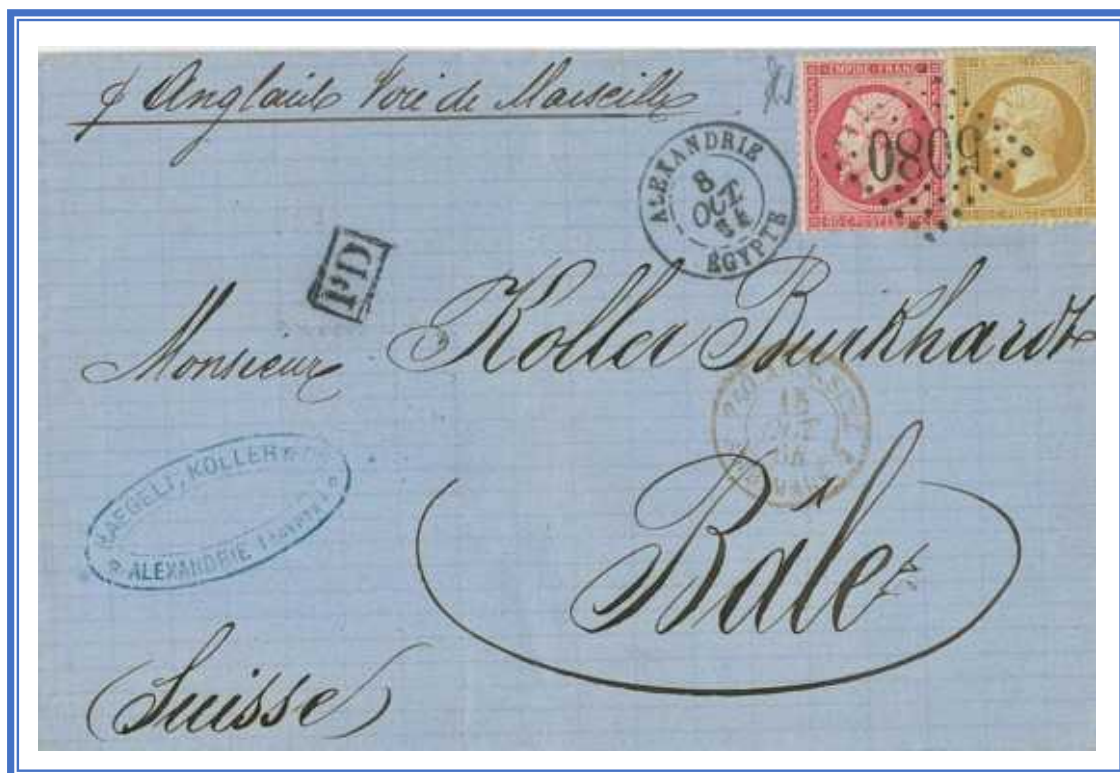 Anglais Voie de Marseille
EMPIRE FRANC
5080
ALEXANDRIE
8
OCT
EGYPTE
PD
Monsieur Koller Burkhardt
KOLLER
ALEXANDRIE
15
Bâle
(Suisse)